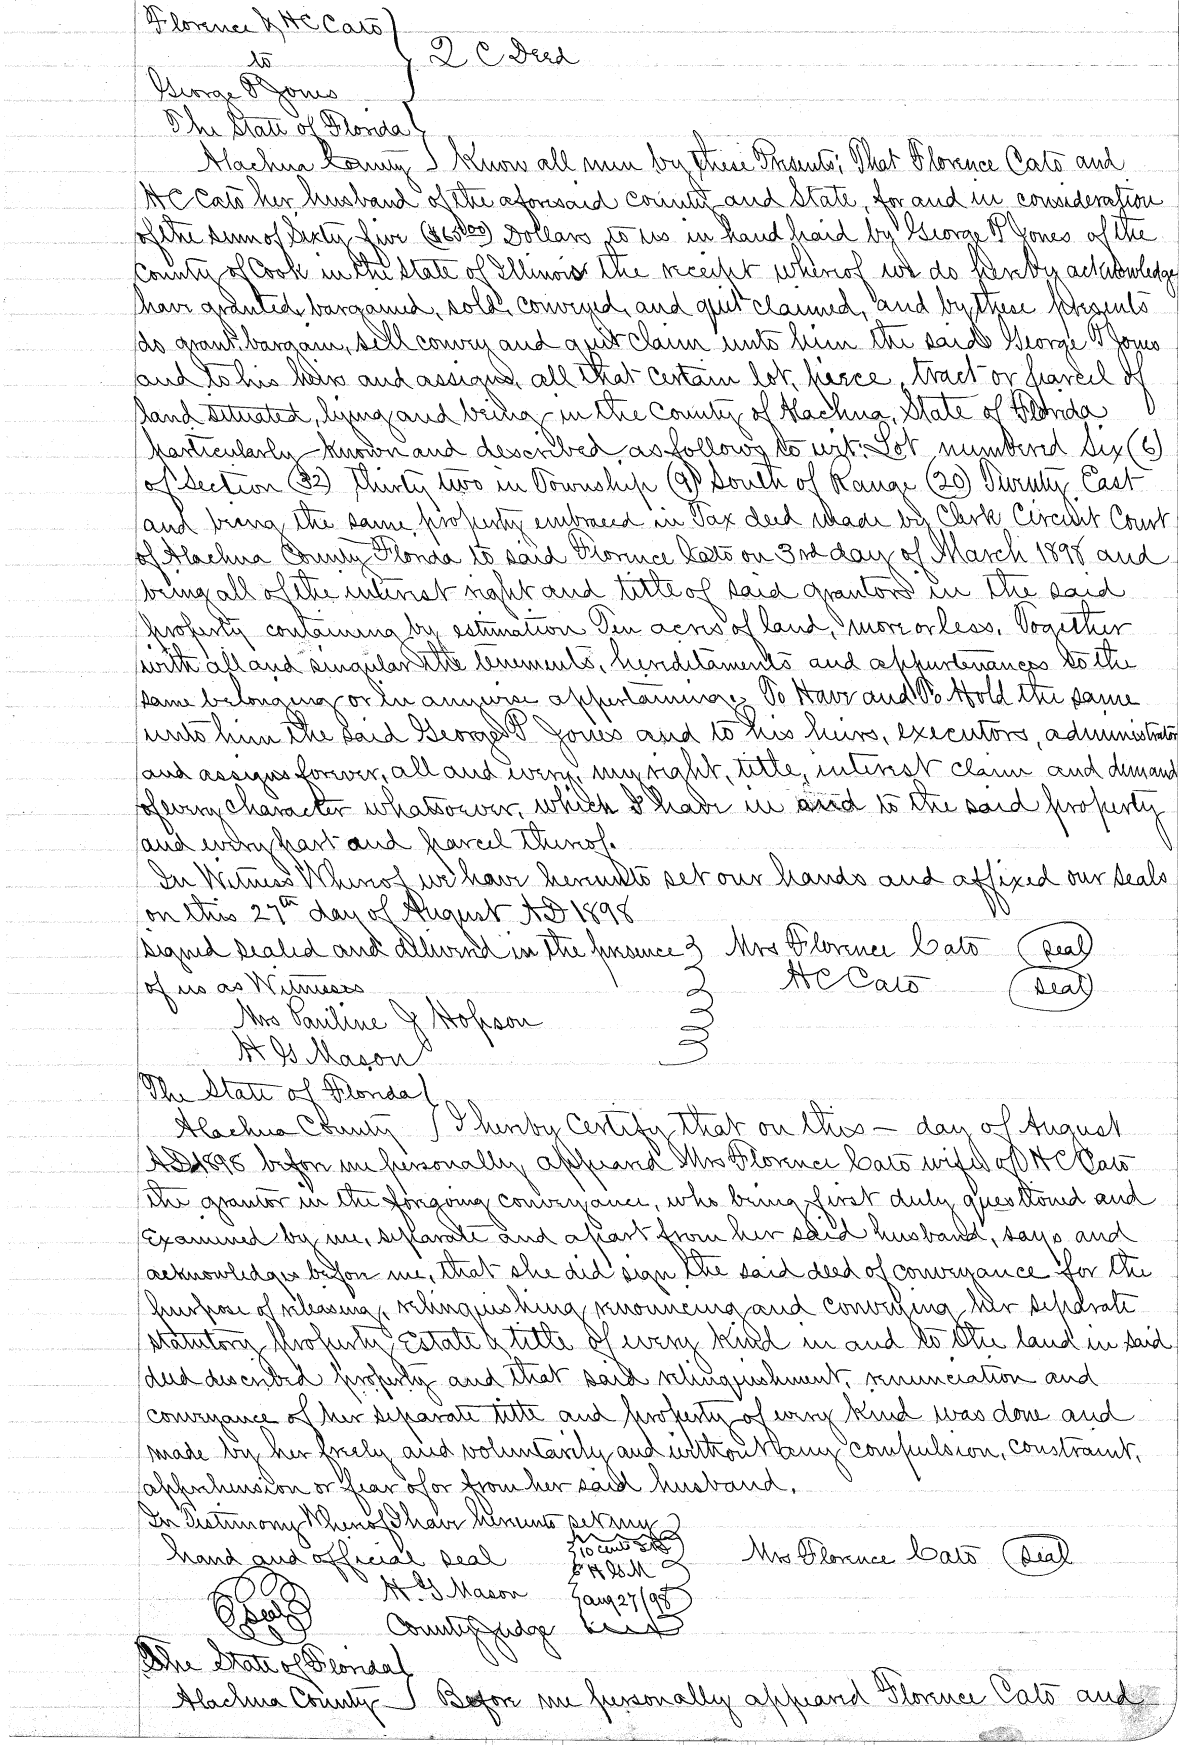 Florence & HC Cato
to
Q C Deed
George P Jones
The State of Florida
Alachua County Know all men by these Presents; That Florence Cato and
HC Cato her husband of the aforesaid county and State, for and in consideration
of the sum of Sixty five ($65.00) Dollars to us in hand paid by George P Jones of the
County of Cook in the State of Illinois the receipt whereof we do hereby acknowledge
have granted, bargained, sold, conveyed, and quit claimed, and by these presents
do grant, bargain, sell convey and quit claim unto him the said George P Jones
and to his heirs and assigns, all that certain lot, piece, tract or parcel of
land situated, lying and being in the County of Alachua, State of Florida
particularly known and described as follows to wit: Lot numbered Six (6)
of Section (32) Thirty two in Township (9) South of Range (20) Twenty East
and being the same property embraced in Tax deed made by Clerk Circuit Court
of Alachua County Florida to said Florence Cato on 3rd day of March 1898 and
being all of the interest right and title of said grantors in the said
property containing by estimation Ten acres of land, more or less. Together
with all and singular the tenements, hereditaments and appurtenances to the
same belonging or in anywise appertaining. To Have and To Hold the same
unto him the said George P Jones and to his heirs, executors, administrators
and assigns forever, all and every, my right, title, interest claim and demand
of every character whatsoever, which I have in and to the said property
and every part and parcel thereof.
In Witness Whereof we have hereunto set our hands and affixed our seals
on this 27th day of August AD 1898
signed sealed and delivered in the presence Mrs Florence Cato seal
of us as Witnesses HC Cato seal
Mrs Pauline J Hopson
H G Mason
The State of Florida
Alachua County I hereby Certify that on this — day of August
AD 1898 before me personally appeared Mrs Florence Cato wife of HC Cato
the grantor in the foregoing conveyance, who being first duly questioned and
Examined by me, separate and apart from her said husband, says and
acknowledges before me, that she did sign the said deed of conveyance for the
purpose of releasing, relinquishing renouncing and conveying her separate
statutory property Estate & title of every kind in and to the land in said
deed described property and that said relinquishment, renunciation and
conveyance of her separate title and property of every kind was done and
made by her freely and voluntarily and without any compulsion, constraint,
apprehension or fear of or from her said husband.
In Testimony Whereof I have hereunto set my
hand and official seal 10 cents Mrs Florence Cato seal
H G M
H. G Mason aug 27/98
Seal County Judge
The State of Florida
Alachua County Before me personally appeared Florence Cato and